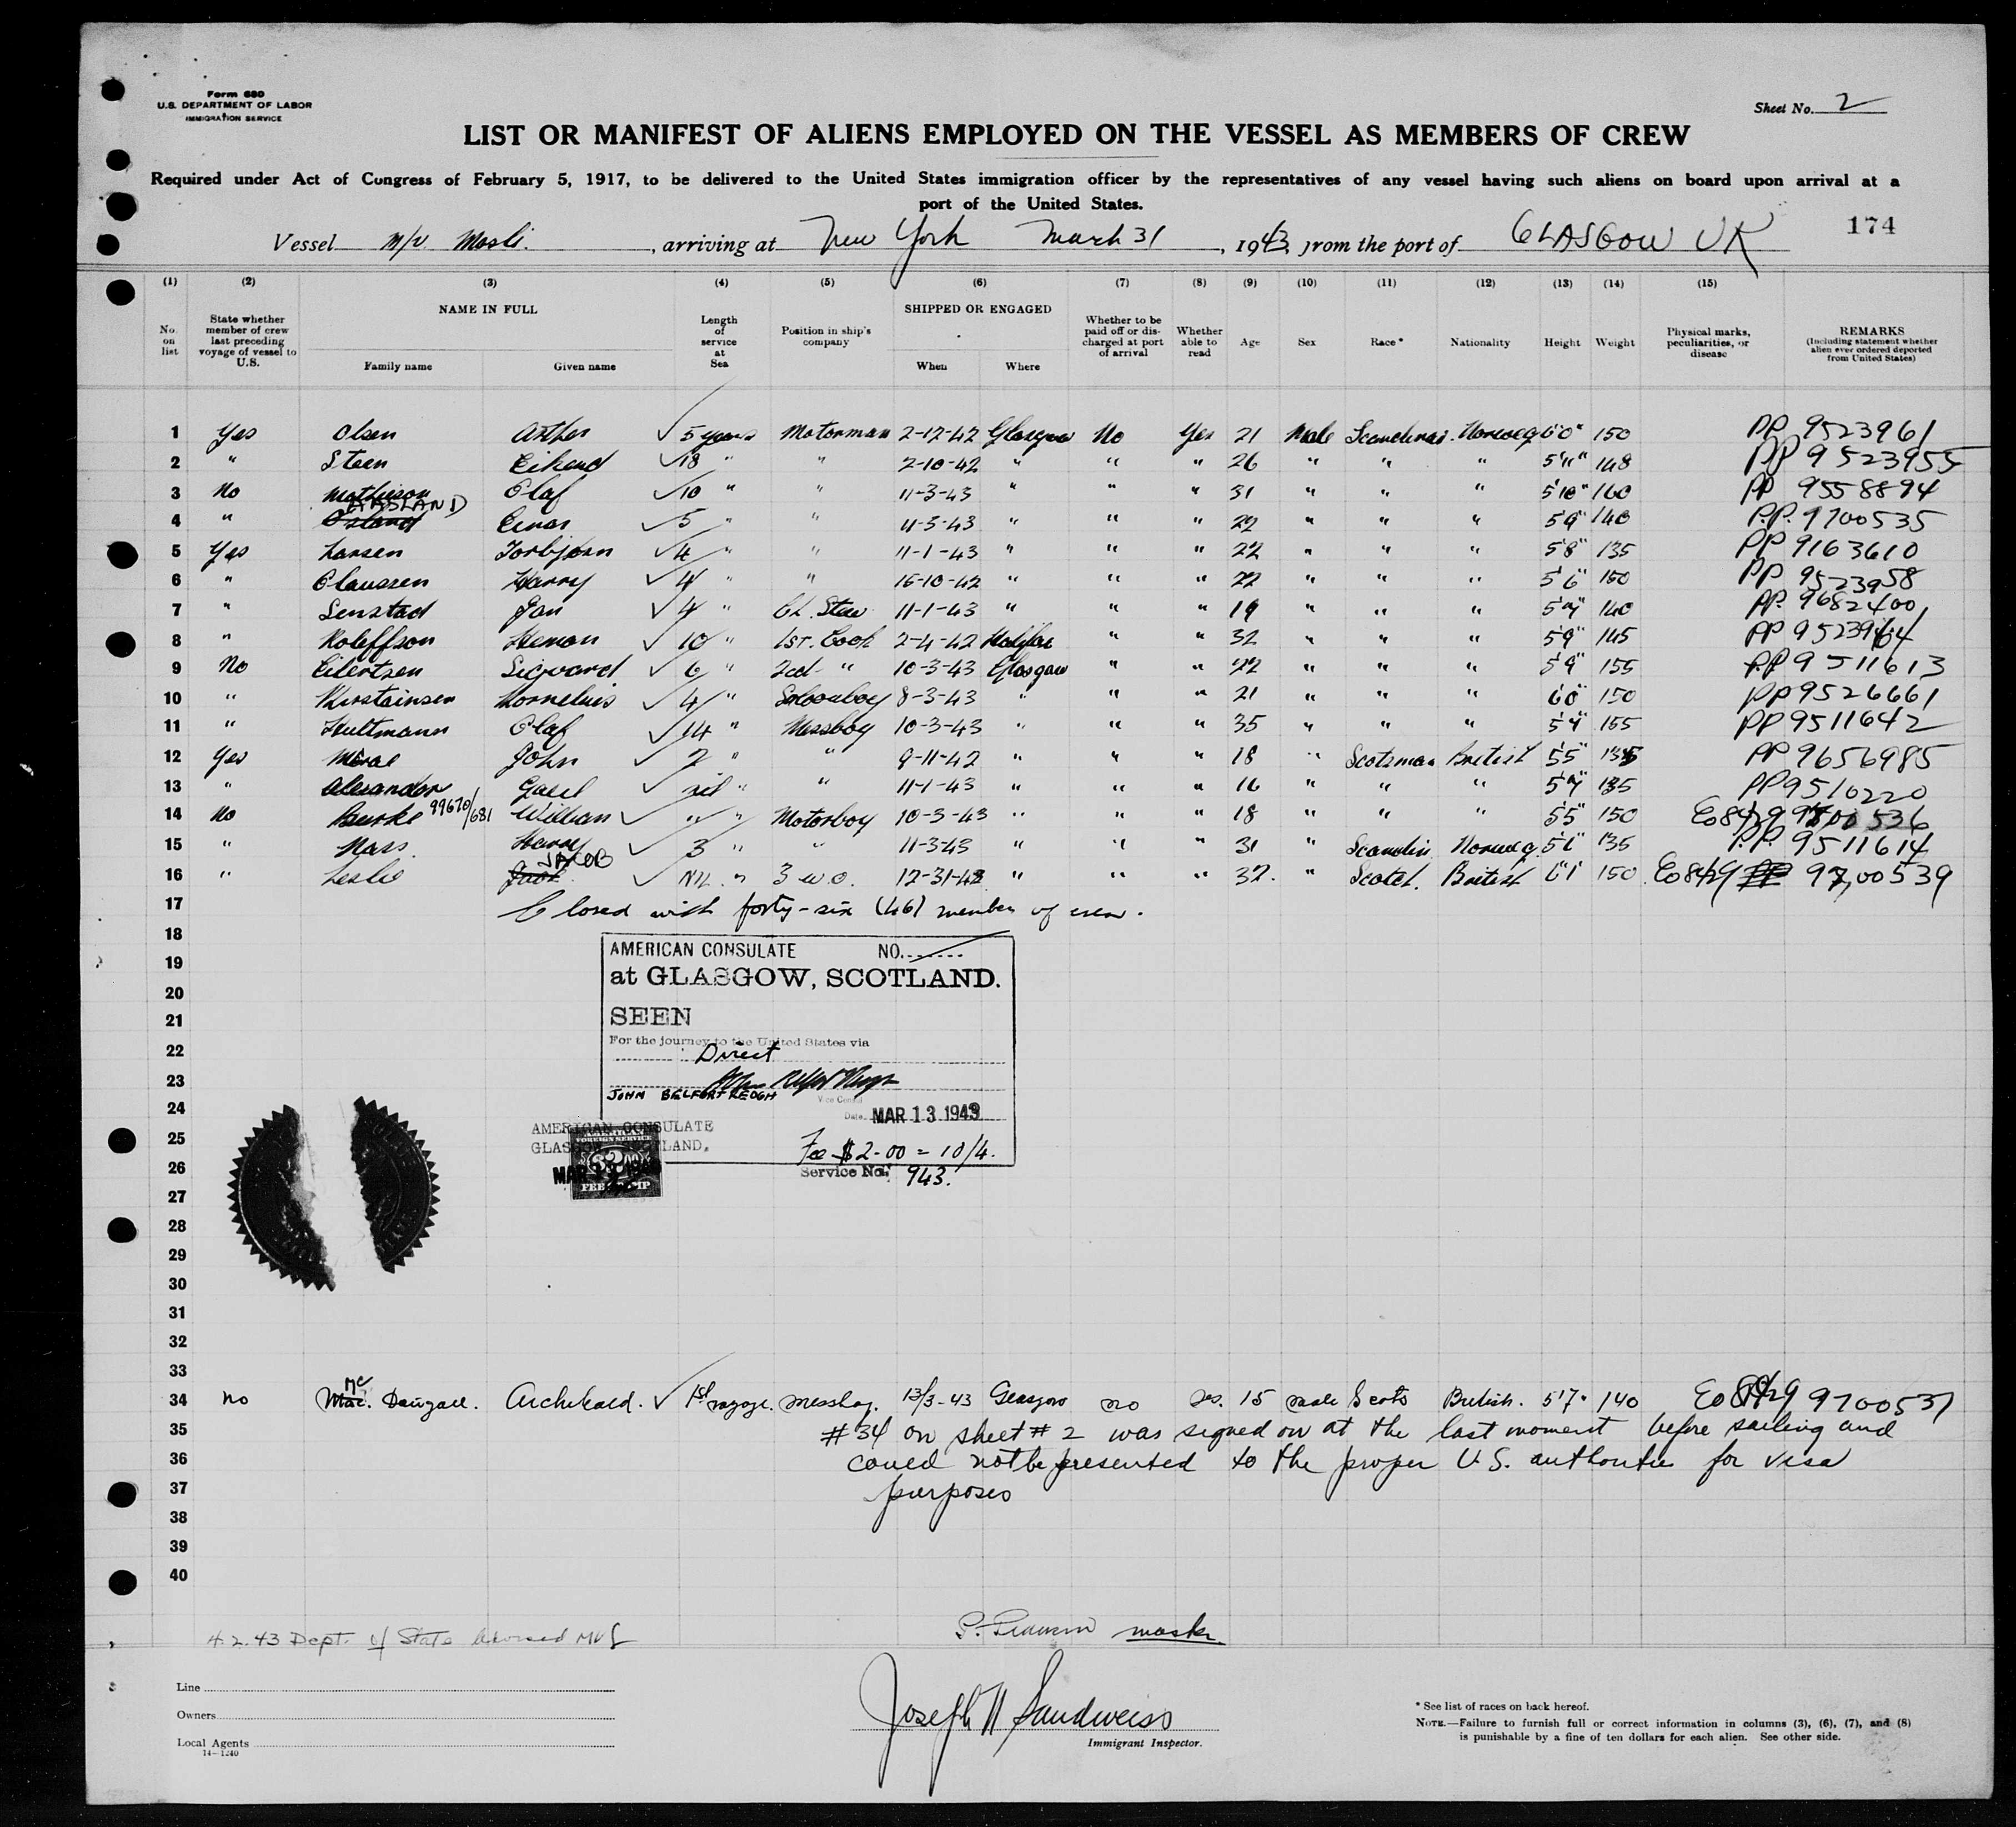 Form 680
U.S. DEPARTMENT OF LABOR
IMMIGRATION SERVICE
Sheet No. 2
LIST OR MANIFEST OF ALIENS EMPLOYED ON THE VESSEL AS MEMBERS OF CREW
Required under Act of Congress of February 5, 1917, to be delivered to the United States immigration officer by the representatives of any vessel having such aliens on board upon arrival at a
port of the United States.
174
Vessel m/v Mosli. , arriving at New York March 31 , 1943, from the port of GLASGOW UK
(1) (2) (3) (4) (5) (6) (7) (8) (9) (10) (11) (12) (13) (14) (15)
No. on list State whether member of crew last preceding voyage of vessel to U.S. NAME IN FULL Family name Given name Length of service at Sea Position in ship's company SHIPPED OR ENGAGED When Where Whether to be paid off or discharged at port of arrival Whether able to read Age Sex Race* Nationality Height Weight Physical marks, peculiarities, or disease REMARKS (Including statement whether alien ever ordered deported from United States)
1 Yes Olsen Arthur ✓ 5 years Motorman 2-12-42 Glasgow No Yes 21 Male 6'0" 150 PP 9523961
2 " Steen ✓ 18 " " 2-10-42 " " " 26 " " " 5'11" 148 PP 9523955
3 No Mathieson Olaf ✓ 10 " " 11-3-43 " " " 31 " " " 5'10" 160 PP 9558894
4 " HAASLAND Einar ✓ 5 " " 11-3-43 " " " 22 " " " 5'9" 140 P.P. 9700535
5 Yes Larsen Torbjorn ✓ 4 " " 11-1-43 " " " 22 " " " 5'8" 135 PP 9163610
6 " Claussen Harry ✓ 4 " " 16-10-42 " " " 22 " " " 5'6" 150 PP 9523958
7 " Senstad Jan ✓ 4 " Ch. Stew 11-1-43 " " " 19 " " " 5'9" 140 PP. 9682400
8 " Roleffson ✓ 10 " 1ST. Cook 2-4-42 Halifax " " 32 " " " 5'9" 145 PP 9523964
9 No Eilertsen Sigvard ✓ 6 " 2nd " 10-3-43 Glasgow " " 22 " " " 5'9" 155 PP 9511613
10 " Kornelius ✓ 4 " 8-3-43 " " " 21 " " " 6'0" 150 PP 9526661
11 " Hultmann Olaf ✓ 14 " Messboy 10-3-43 " " " 35 " " " 155 PP 9511642
12 Yes John ✓ 2 " " 9-11-42 " " " 18 " Scotsman British 5'5" 135 PP 9656985
13 " Alexander ✓ nil " " 11-1-43 " " " 16 " " " 135 PP 9510220
14 No Burke 99670/681 William ✓ " " Motorboy 10-3-43 " " " 18 " " " 5'5" 150 Eo 8429 9700536
15 " Nass Harry ✓ 3 " " 11-3-43 " " " 31 " Scandin. Norweg. 5'6" 135 P.P. 9511614
16 " Leslie JACOB ✓ Nil " 3 w.o. 12-31-42 " " " 32. " Scotch. British 6'1" 150 Eo 8429 9700539
17 Closed with forty-six (46) members of crew.
18
AMERICAN CONSULATE NO.
19
at GLASGOW, SCOTLAND.
20
SEEN
21
For the journey to the United States via
22
Direct
23
JOHN BELFORT KEOGH
Vice Consul
24
Date MAR 13 1943
25
AMERICAN CONSULATE
GLASGOW, SCOTLAND.
FOREIGN SERVICE
Fee $2.00 = 10/4.
26
MAR 13 1943
$2.00
FEE STAMP
Service No. 943.
27
28
29
30
31
32
33
34 no Mc Dougall. Archibald. ✓ 1st voyage. messboy. 13/3-43 Glasgow no yes. 15 male Scots British. 5'7" 140 Eo 8429 9700537
35 #34 on sheet #2 was signed on at the last moment before sailing and
36 could not be presented to the proper U.S. authorities for visa
37 purposes
38
39
40
4.2.43 Dept. of State Advised MVL
master
Line
Owners
Local Agents
14-1240
Joseph N Sandweiss
Immigrant Inspector.
* See list of races on back hereof.
NOTE.—Failure to furnish full or correct information in columns (3), (6), (7), and (8)
is punishable by a fine of ten dollars for each alien. See other side.